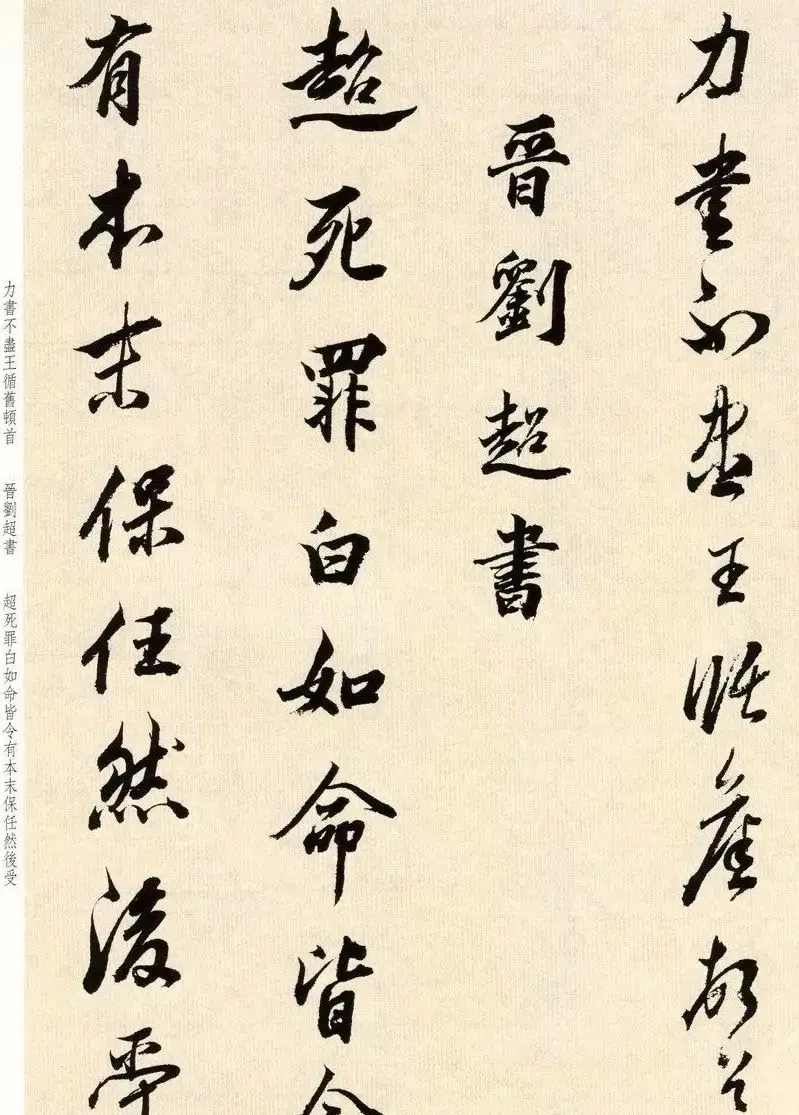 力書不盡王循舊頓首
晉劉超書
超死罪白如命皆令
有本末保任然後受
力書不盡王循舊頓首　晉劉超書　超死罪白如命皆令有本末保任然後受